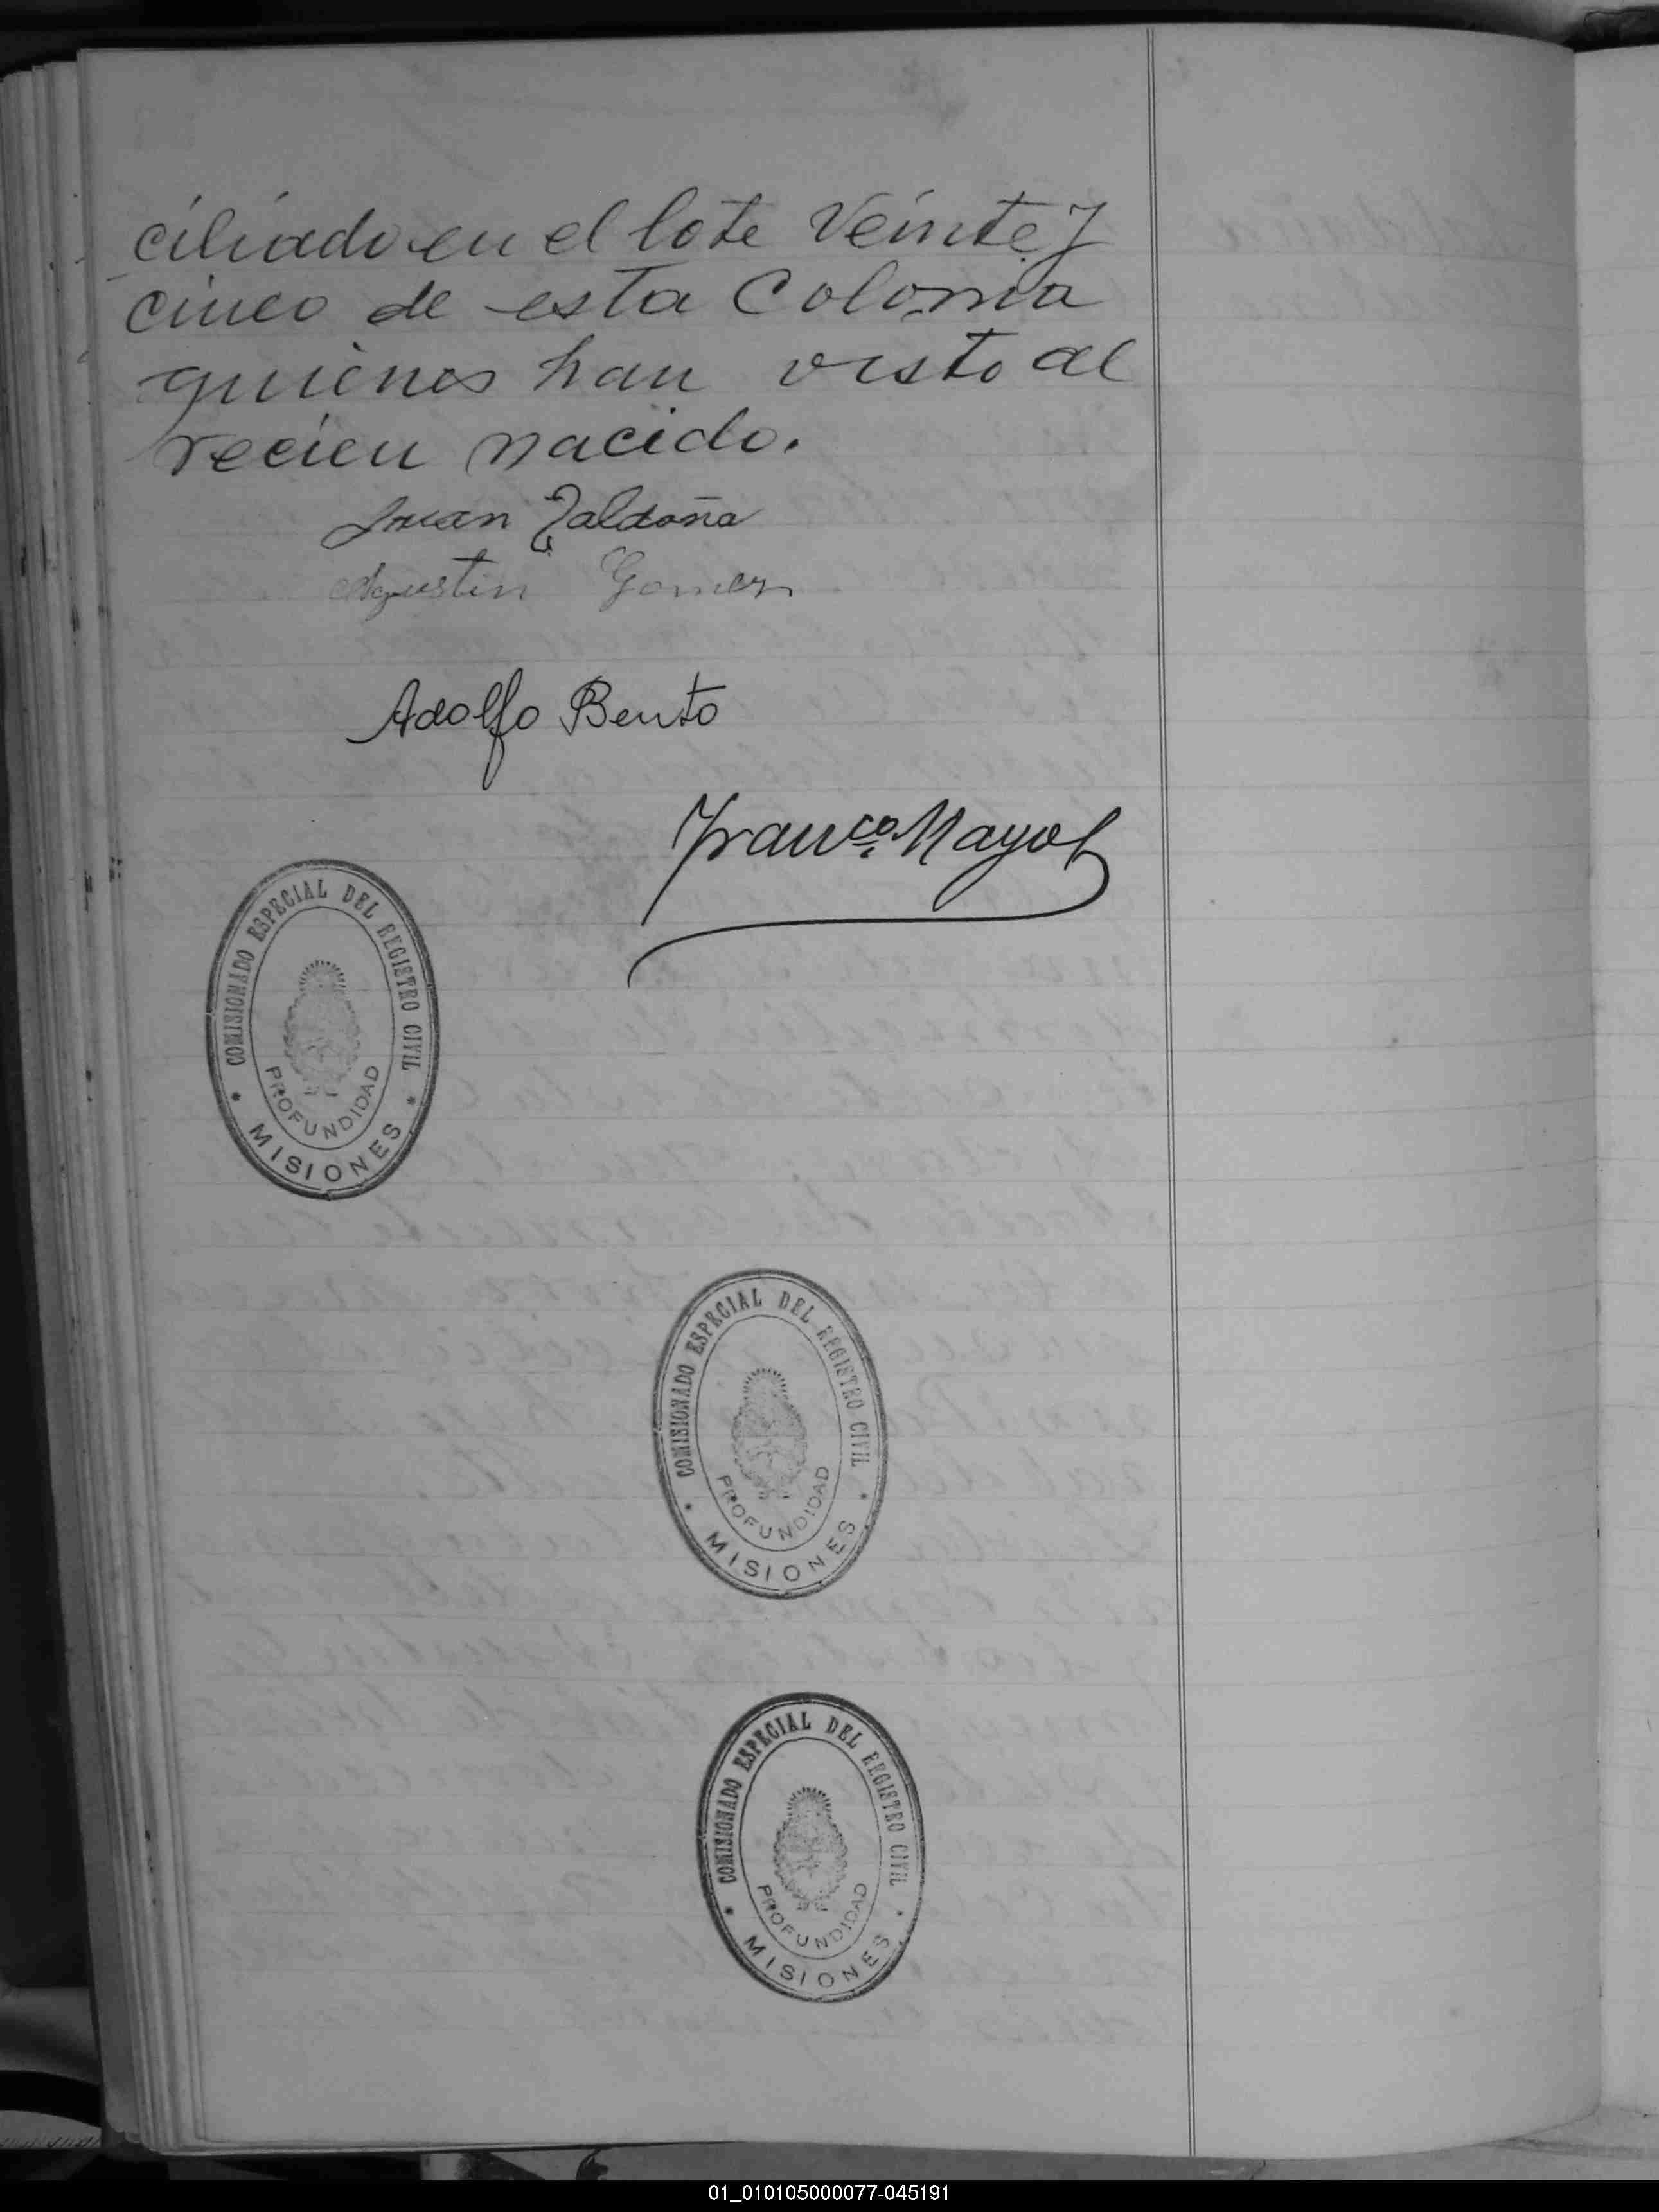 ciliado en el lote Veinte y
cinco de esta Colonia
quienes han visto al
recien nacido.
Juan Zaldaña
Agustin Gomez
Adolfo Bento
Franco. Mayol
COMISIONADO ESPECIAL DEL REGISTRO CIVIL
PROFUNDIDAD
* MISIONES *
COMISIONADO ESPECIAL DEL REGISTRO CIVIL
PROFUNDIDAD
* MISIONES *
COMISIONADO ESPECIAL DEL REGISTRO CIVIL
PROFUNDIDAD
* MISIONES *
01_010105000077-045191